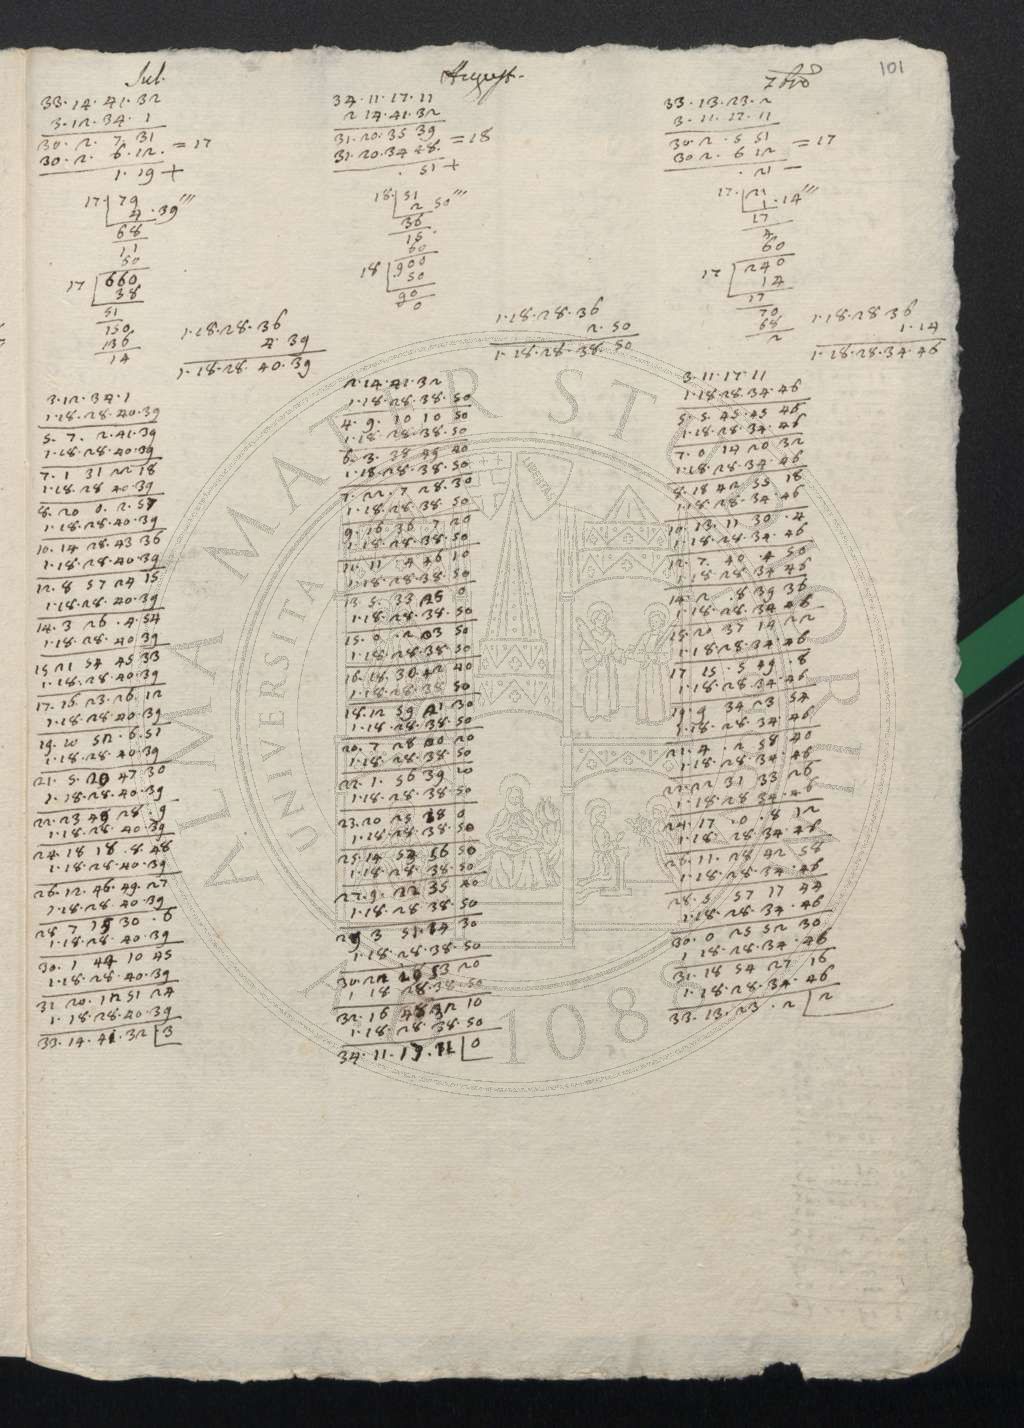 101
Jul.
33.14.41.32
3.12.34.1
30.2.7 31
30.2.6.12. =17
1.19+
17 79
4.39'''
68
11
60
17 660
38
51
150
136
14
1.18.28.36
4.39
1.18.28.40.39
3.12.34.1
1.18.28.40.39
5.7.2.41.39
1.18.28.40.39
7.1 31 22 18
1.18.28 40 39
8.20 0.2.57
1.18.28.40.39
10.14 28.43 36
1.18.28.40.39
12.8 57 24 15
1.18.28.40.39
14.3 26.4 54
1.18.28.40 39
15 21 54 45 33
1.18.28.40.39
17.16.23.26.12
1.18.28 40 39
19.10 52.6.51
1.18.28.40.39
21.5.20 47 30
1.18.28.40.39
22.23 49 28.9
1.18.28.40 39
24.18 18.8.48
1.18.28.40.39
26.12.46.49.27
1.18.28 40 39
28 7 15 30.6
1.18.28.40.39
30.1 44 10 45
1.18.28.40.39
31 20.12 51 24
1.18.28.40.39
33.14.41.32 3
August.
34.11.17.11
2 14.41.32
31.20.35 39
31.20.34 48. =18
.51+
18. 51
2 50'''
36
15.
60
18 900
50
90
0
1.18.28.36
2.50
1.18.28.38.50
2.14.41.32
1.18.28.38.50
4.9.10 10 50
1.18 28.38.50
6.3.38 49 40
1.18.28.38.50
7.22.7 28.30
1.18.28.38 50
9.16 36 7 20
1.18.28.38.50
11.11.4 46 10
1.18.28.38 50
13 5.33 25 0
1.18.28.38.50
15.0.2 03 50
1.18.28.38.50
16.18.30 42 40
1.18.28 38 50
18.12 59 21 30
1.18.28.38.50
20.7 28 00 20
1.18.28.38.50
22.1.56 39 10
1.18.28 38.50
23.20 25 18 0
1.18.28.38.50
25.14 53 56 50
1.18.28.38.50
27.9.22 35 40
1.18.28 38 50
29 3 51.14 30
1.18.28.38.50
30.22 19 53 20
1 18 28.38.50
32.16 48 32 10
1.18.28 38.50
34.11.17.11 0
7bris
33.13.23.2
3.11.17.11
30 2.5 51
30 2.6 12 =17
.21 −
17. 21
1.14'''
17
4
60
17 240
14
17
70
68
2
1.18.28.36
1.14
1.18.28.34.46
3.11.17.11
1.18.28.34.46
5.5.45.45 46
1.18.28.34.46
7.0 14 20 32
1.18.28.34.46
8.18 42 55 18
1.18.28.34.46
10.13.11 30.4
1.18.28.34.46
12.7.40.4 50
1.18.28.34 46
14.2.8 39 36
1.18.28.34 46
15.20 37 14 22
1.18.28.34.46
17 15.5 49.8
1.18.28.34.46
19.9 34 23 54
1.18.28.34 46
21.4.2 58 40
1.18.28.34 46
22.22 31 33 26
1.18.28 34.46
24.17.0.8 12
1.18.28 34.46
26.11.28 42 58
1.18.28.34.46
28.5 57 17 44
1.18.28.34.46
30.0 25 52 30
1.18.28.34.46
31.18 54 27 16
1.18.28.34.46
33.13.23.2 2
ALMA MATER STUDIORUM
UNIVERSITA
LIBERTAS
1088